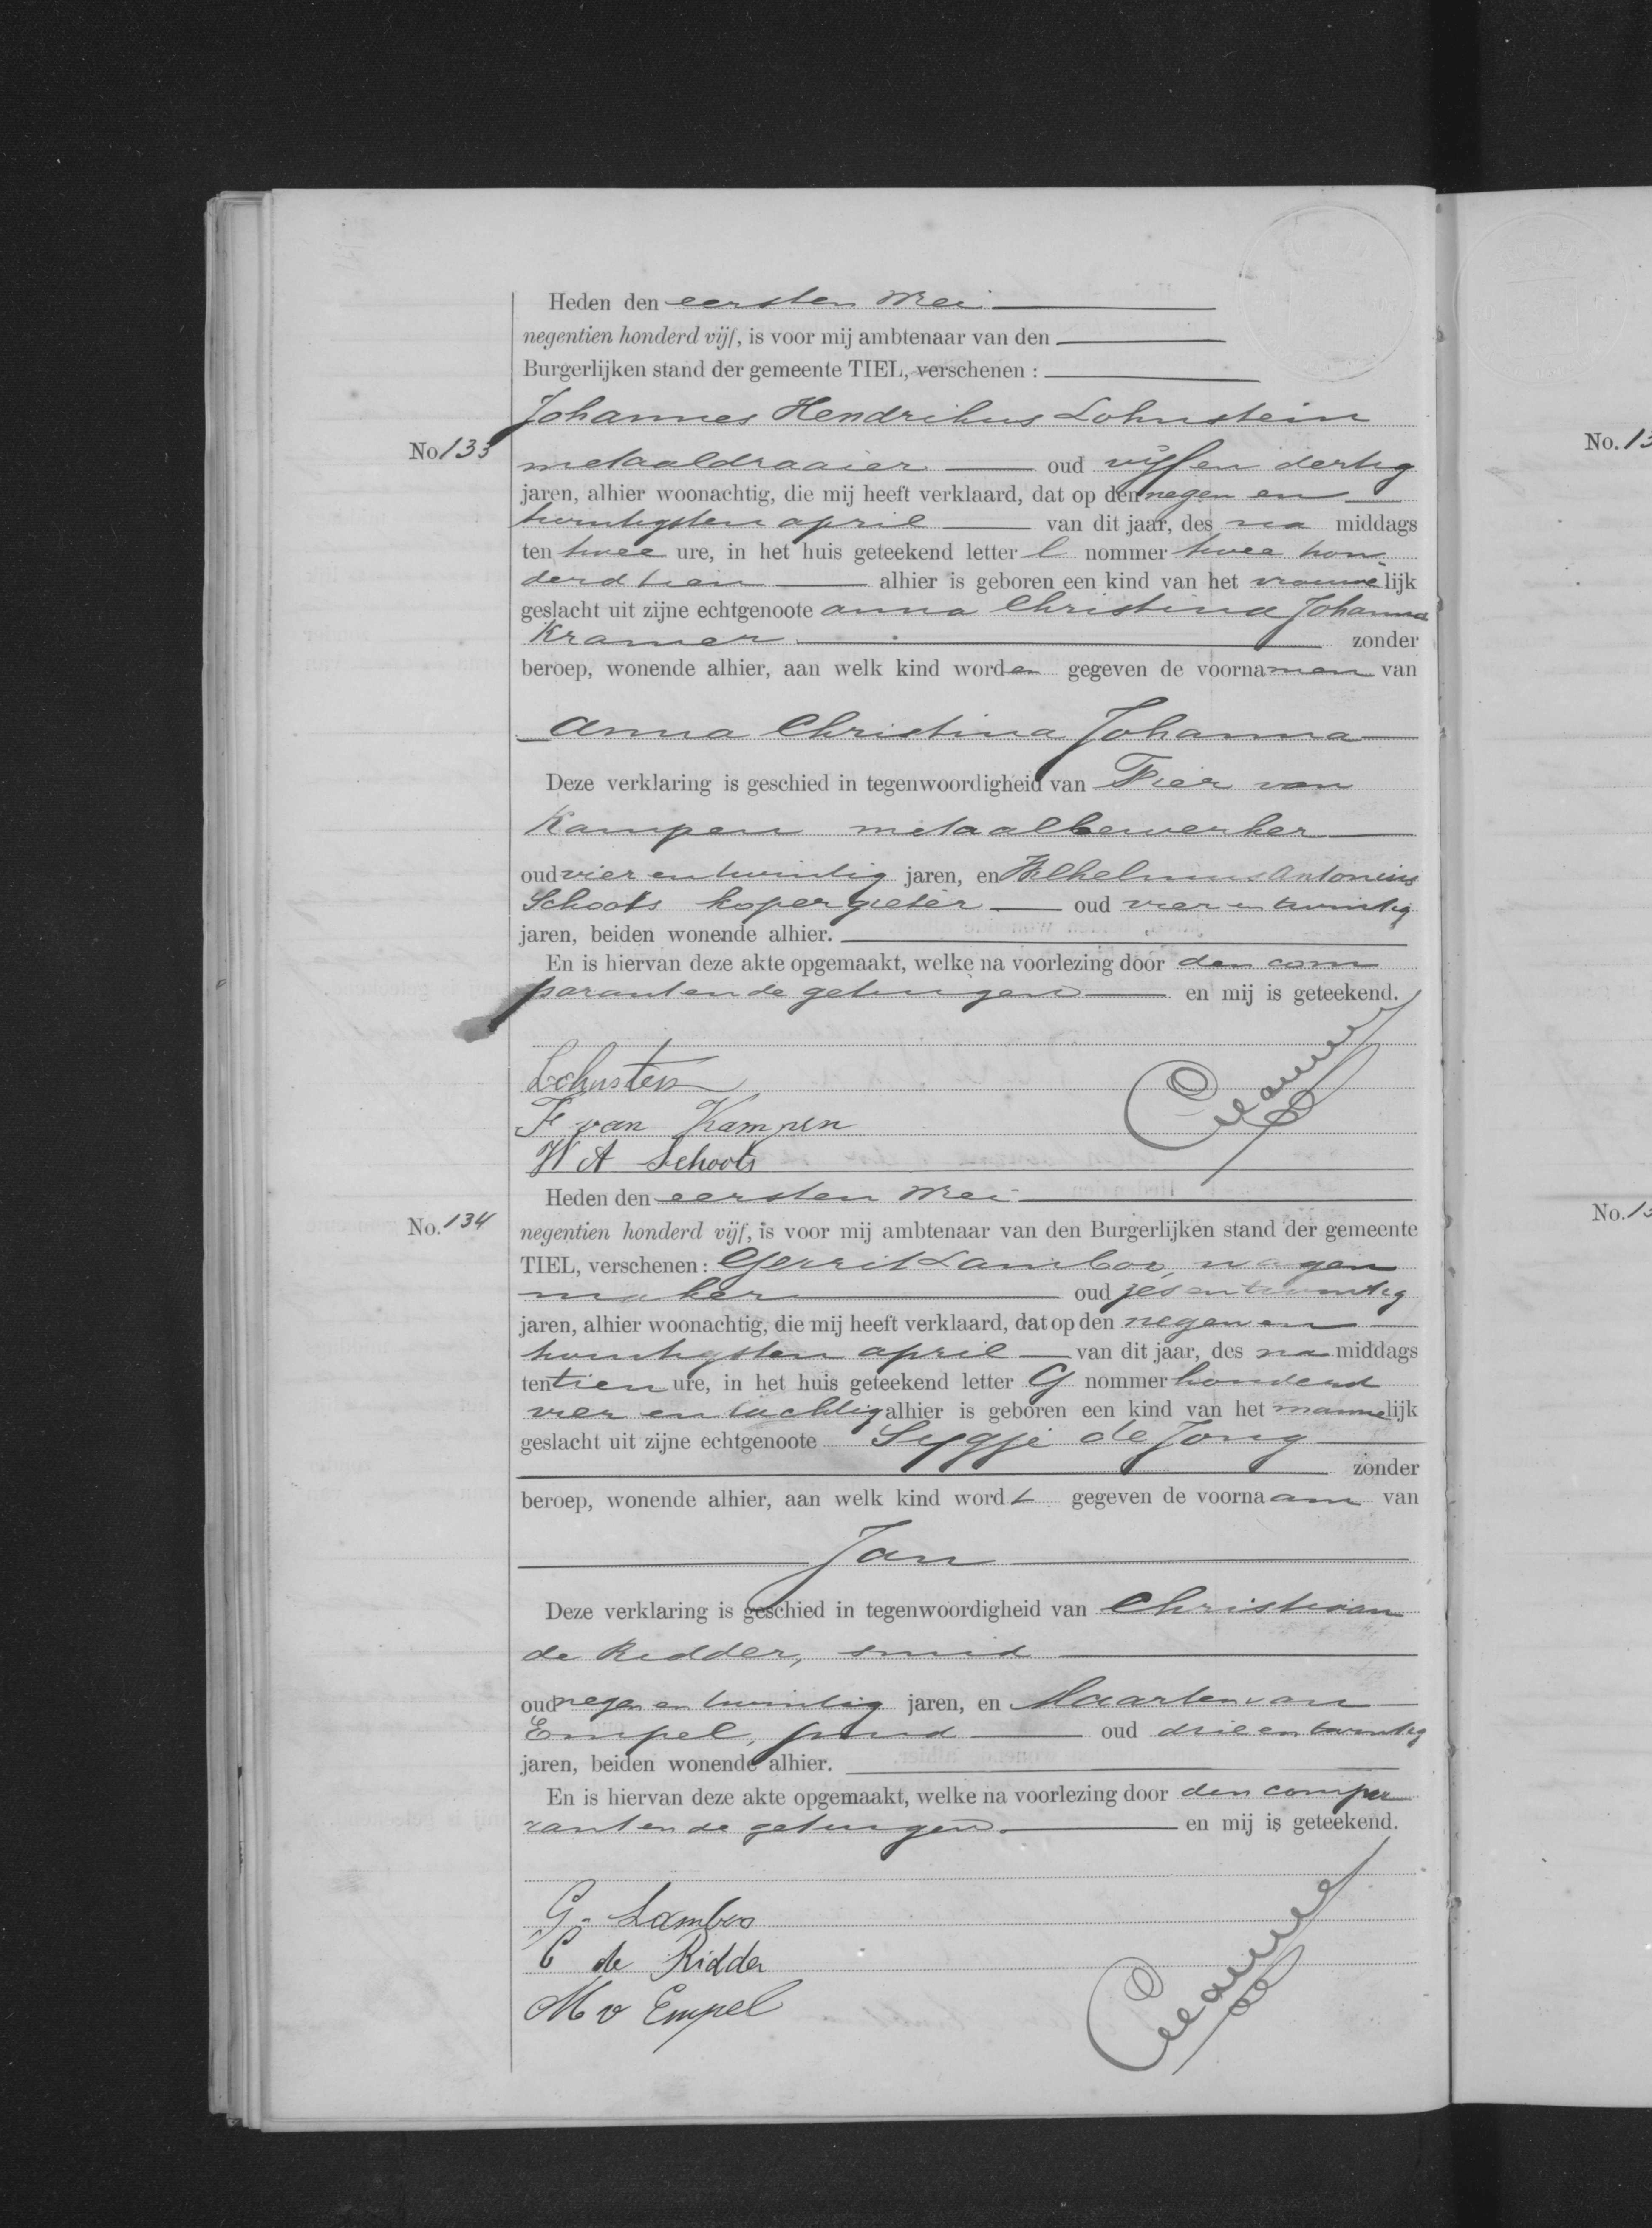 Heden den eersten Mei
negentien honderd vijf, is voor mij ambtenaar van den
Burgerlijken stand der gemeente TIEL, verschenen :
Johannes Hendrikus Lohnstein
No 133
metaaldraaier oud vijf en dertig
jaren, alhier woonachtig, die mij heeft verklaard, dat op den negen en
twintigsten april van dit jaar, des na middags
ten twee ure, in het huis geteekend letter l nommer twee hon
derd tien alhier is geboren een kind van het vrouwelijk
geslacht uit zijne echtgenoote anna Christina Johanna
Kramer zonder
beroep, wonende alhier, aan welk kind worden gegeven de voornamen van
Anna Christina Johanna
Deze verklaring is geschied in tegenwoordigheid van van
Kampen metaalbewerker
oud vier en twintig jaren, en Wilhelmus Antonius
Schoots kopergieter oud vier en twintig
jaren, beiden wonende alhier.
En is hiervan deze akte opgemaakt, welke na voorlezing door den com
parant en de getuigen en mij is geteekend.
Lohnstein
F van Kampen
W A Schoots
Heden den eersten Mei
No. 134
negentien honderd vijf, is voor mij ambtenaar van den Burgerlijken stand der gemeente
TIEL, verschenen: Gerrit Lamboo, wagen
maker oud zes en twintig
jaren, alhier woonachtig, die mij heeft verklaard, dat op den negen en
twintigsten april van dit jaar, des na middags
ten tien ure, in het huis geteekend letter G nommer honderd
vier en tachtig alhier is geboren een kind van het mannelijk
geslacht uit zijne echtgenoote Sygje de Jong
zonder
beroep, wonende alhier, aan welk kind wordt gegeven de voornaam van
Jan
Deze verklaring is geschied in tegenwoordigheid van Christiaan
de Ridder, smid
oud negen en twintig jaren, en Maarten van
Empel, smid oud drie en twintig
jaren, beiden wonende alhier.
En is hiervan deze akte opgemaakt, welke na voorlezing door den compa
rant en de getuigen en mij is geteekend.
G. Lamboo
C de Ridder
M v Empel
No. 13
No. 13